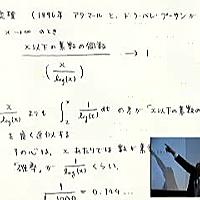 定理 (1896年 アダマールと、ド・ラ・バレ・プーサンが
x→∞ のとき
x以下の素数の個数
(x/log(x)) → 1
x/log(x) よりも ∫₂ˣ 1/log(t) dt の方が "x以下の素数の
を良く近似する
その心は、x あたりでは 数が素
"確率" が 1/log(x) くらい。
= 0.144...